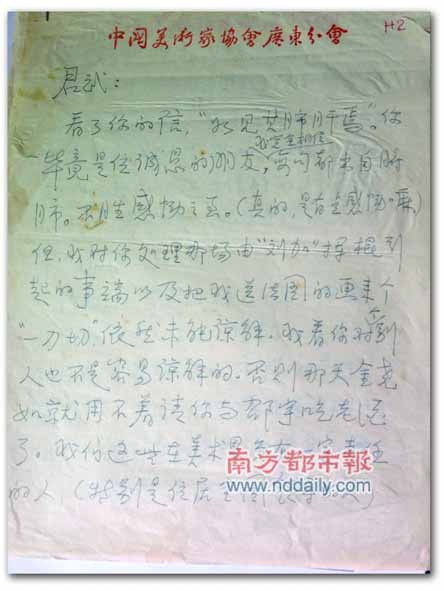 中国美術家協會廣東分會
H2
君武：
看了你的信，“如见其肺肝焉”。你
毕竟是位诚恳的朋友，
肺。不胜感恸之至。（真的，是有点感恸
但，我对你处理那场由“刘
起的事端以及把我送法国的画来个
“一刀切”依然未能谅解。我看你对别
人也不是容易谅解的。否则那天
如就用不着请你与郁宇吃
了。我们这些在美术界负有一定责任
的人，（特别是位居
南方都市報
www.nddaily.com